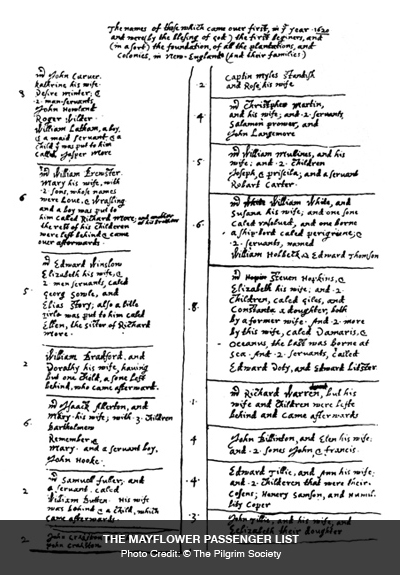 The names of those which came over first, in yᵉ year .1620
and were (by the blesing of god) the first beginers, and
(in a sort) the foundation, of all the plantations, and
Colonies, in New-England (and their families)
8
mʳ John Carver.
kathrine his wife.
Desire Minter, &
.2. man-servants
John Howland
Roger Wilder.
William Latham, a boy,
& a maid servant. & a
child yᵗ was put to him
called, Jasper More
6
mʳ William Brewster.
Mary his wife, with
.2. sons, whose names
were Love, & Wrasling
and a boy was put to
him called Richard More; and another
of his brothers
the rest of his Children
were left behind & came
over afterwards.
5.
mʳ Edward Winslow
Elizabeth his wife, &
2 men servants, caled
Georg Sowle, and
Elias Story; also a litle
girle was put to him caled
Ellen, the sister of Richard
More.
2
William Bradford, and
Dorathy his wife, having
but one Child, a sone left
behind, who came afterward.
6
mʳ Isaack Allerton, and
Mary his wife; with .3. children
Bartholmew
Remember, &
Mary. and a servant boy,
John Hooke.
2
mʳ Samuell fuller, and
a servant, caled
William Butten. His wife
was behind & a child, which
came afterwards.
2
John Crakston
John Crakston
.2
Captin Myles Standish
and Rose, his wife
.4.
mʳ Christopher Martin,
and his wife; and .2. servants,
Salamon prower, and
John Langemore
.5
mʳ William Mullines, and his
wife; and .2. Children
Joseph, & priscila; and a servant
Robart Carter.
.6.
mʳ William White, and
Susana his wife; and one sone
caled resolved, and one borne
a ship-bord caled peregriene; &
.2. servants, named
William Holbeck, & Edward Thomson
.8.
mʳ Steven Hopkins, &
Elizabeth his wife; and .2.
Children, caled Giles, and
Constanta a doughter, both
by a former wife. And .2. more
by this wife, caled Damaris, &
Oceanus, the last was borne at
sea. And .2. servants, called
Edward Doty, and Edward Litster
.1.
mʳ Richard Warren, but his
wife and Children were lefte
behind and came afterwards
4
John Billinton, and Elen his wife:
and .2. sones John & Francis.
.4.
Edward Tillie, and Ann his wife:
and .2. Children that were their
Cosens; Henery Samson, and Humil-
lity Coper
.3.
John Tillie, and his wife; and
Eelizabeth their doughter
THE MAYFLOWER PASSENGER LIST
Photo Credit: © The Pilgrim Society